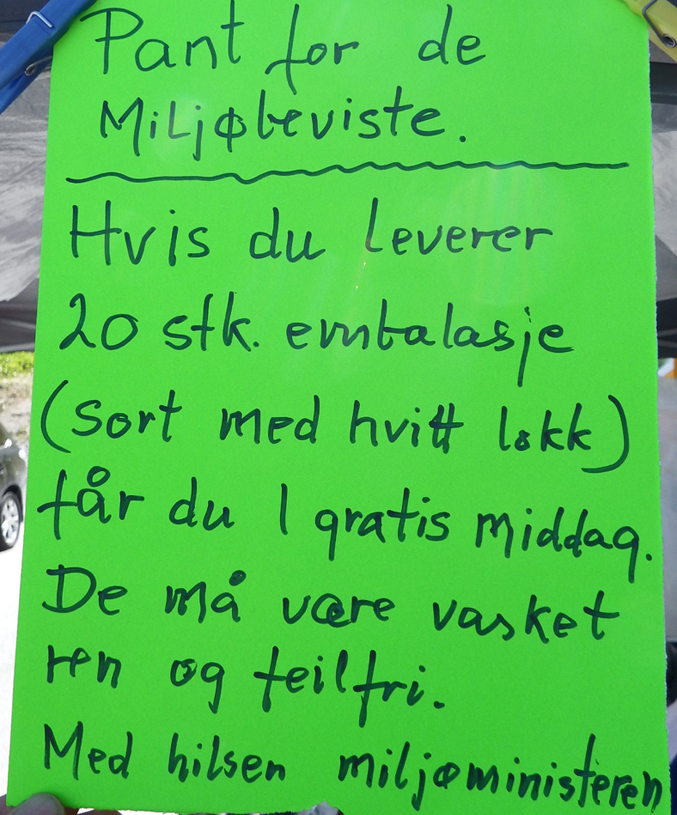 Pant for de
Miljøbeviste.
Hvis du leverer
20 stk. embalasje
(sort med hvitt lokk)
får du 1 gratis middag.
De må være vasket
ren og feilfri.
Med hilsen miljøministeren